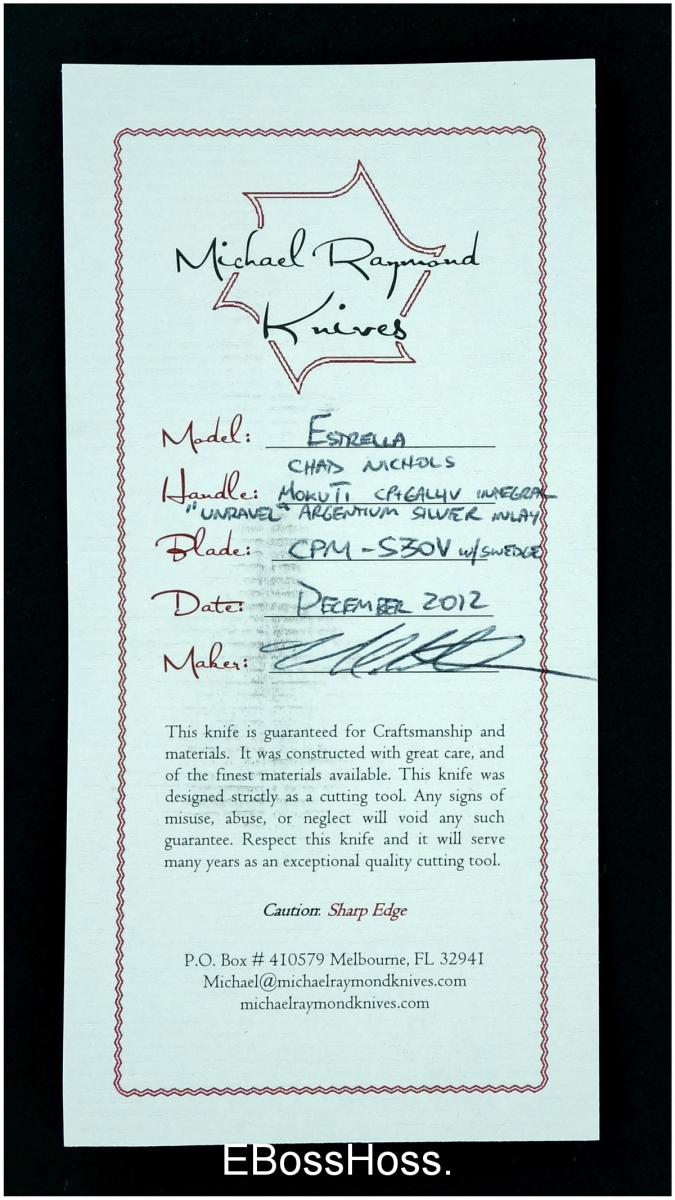 Michael Raymond
Knives
Model: ESTRELLA
CHAD NICHOLS
Handle: MOKUTI CP+6AL4V INTEGRAL
"UNRAVEL" ARGENTIUM SILVER INLAY
Blade: CPM-S30V w/SWEDGE
Date: DECEMBER 2012
Maker:
This knife is guaranteed for Craftsmanship and
materials. It was constructed with great care, and
of the finest materials available. This knife was
designed strictly as a cutting tool. Any signs of
misuse, abuse, or neglect will void any such
guarantee. Respect this knife and it will serve
many years as an exceptional quality cutting tool.
Caution: Sharp Edge
P.O. Box # 410579 Melbourne, FL 32941
Michael@michaelraymondknives.com
michaelraymondknives.com
EBossHoss.